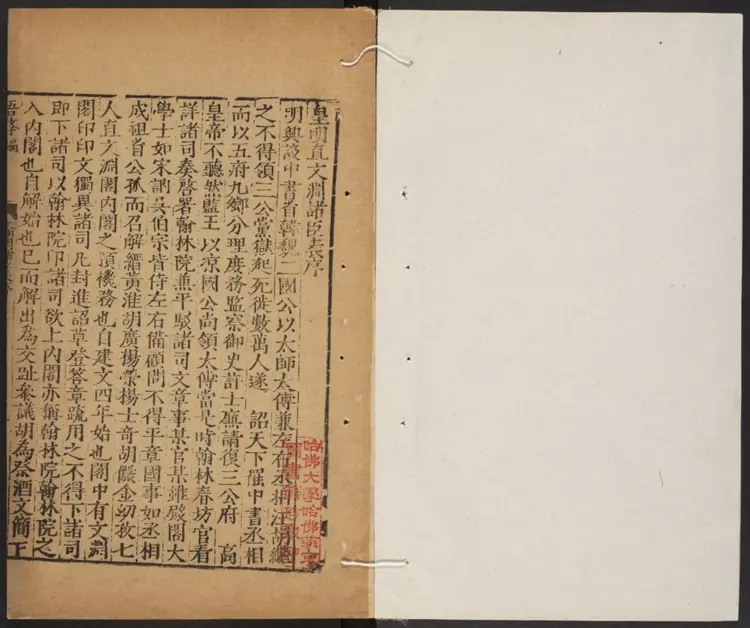 皇明直文淵諸臣表序
明興設中書省韓魏二國公以太師太傅兼左右丞相汪胡繼
之不得領三公黨獄起死徙數萬人遂 詔天下罷中書丞相
而以五府九卿分理庶務監察御史許士廉請復三公府 高
皇帝不聽然藍王以凉國公尚領太傅當是時翰林春坊官看
詳諸司奏啓署翰林院兼平駁諸司文章事某官某雖殿閣大
學士如宋訥吳伯宗皆侍左右備顧問不得平章國事如丞相
成祖首公孤而召解縉黃淮胡廣楊榮楊士奇胡儼金幼孜七
人直文淵閣內閣之預機務也自建文四年始也閣中有文淵
閣印印文獨異諸司凡封進詔草登答章疏用之不得下諸司
即下諸司以翰林院印諸司欲上內閣亦稱翰林院翰林院之
入內閣也自解始也已而解出為交趾參議胡為祭酒文簡下
吾學編
哈佛大學哈佛燕京
圖書館